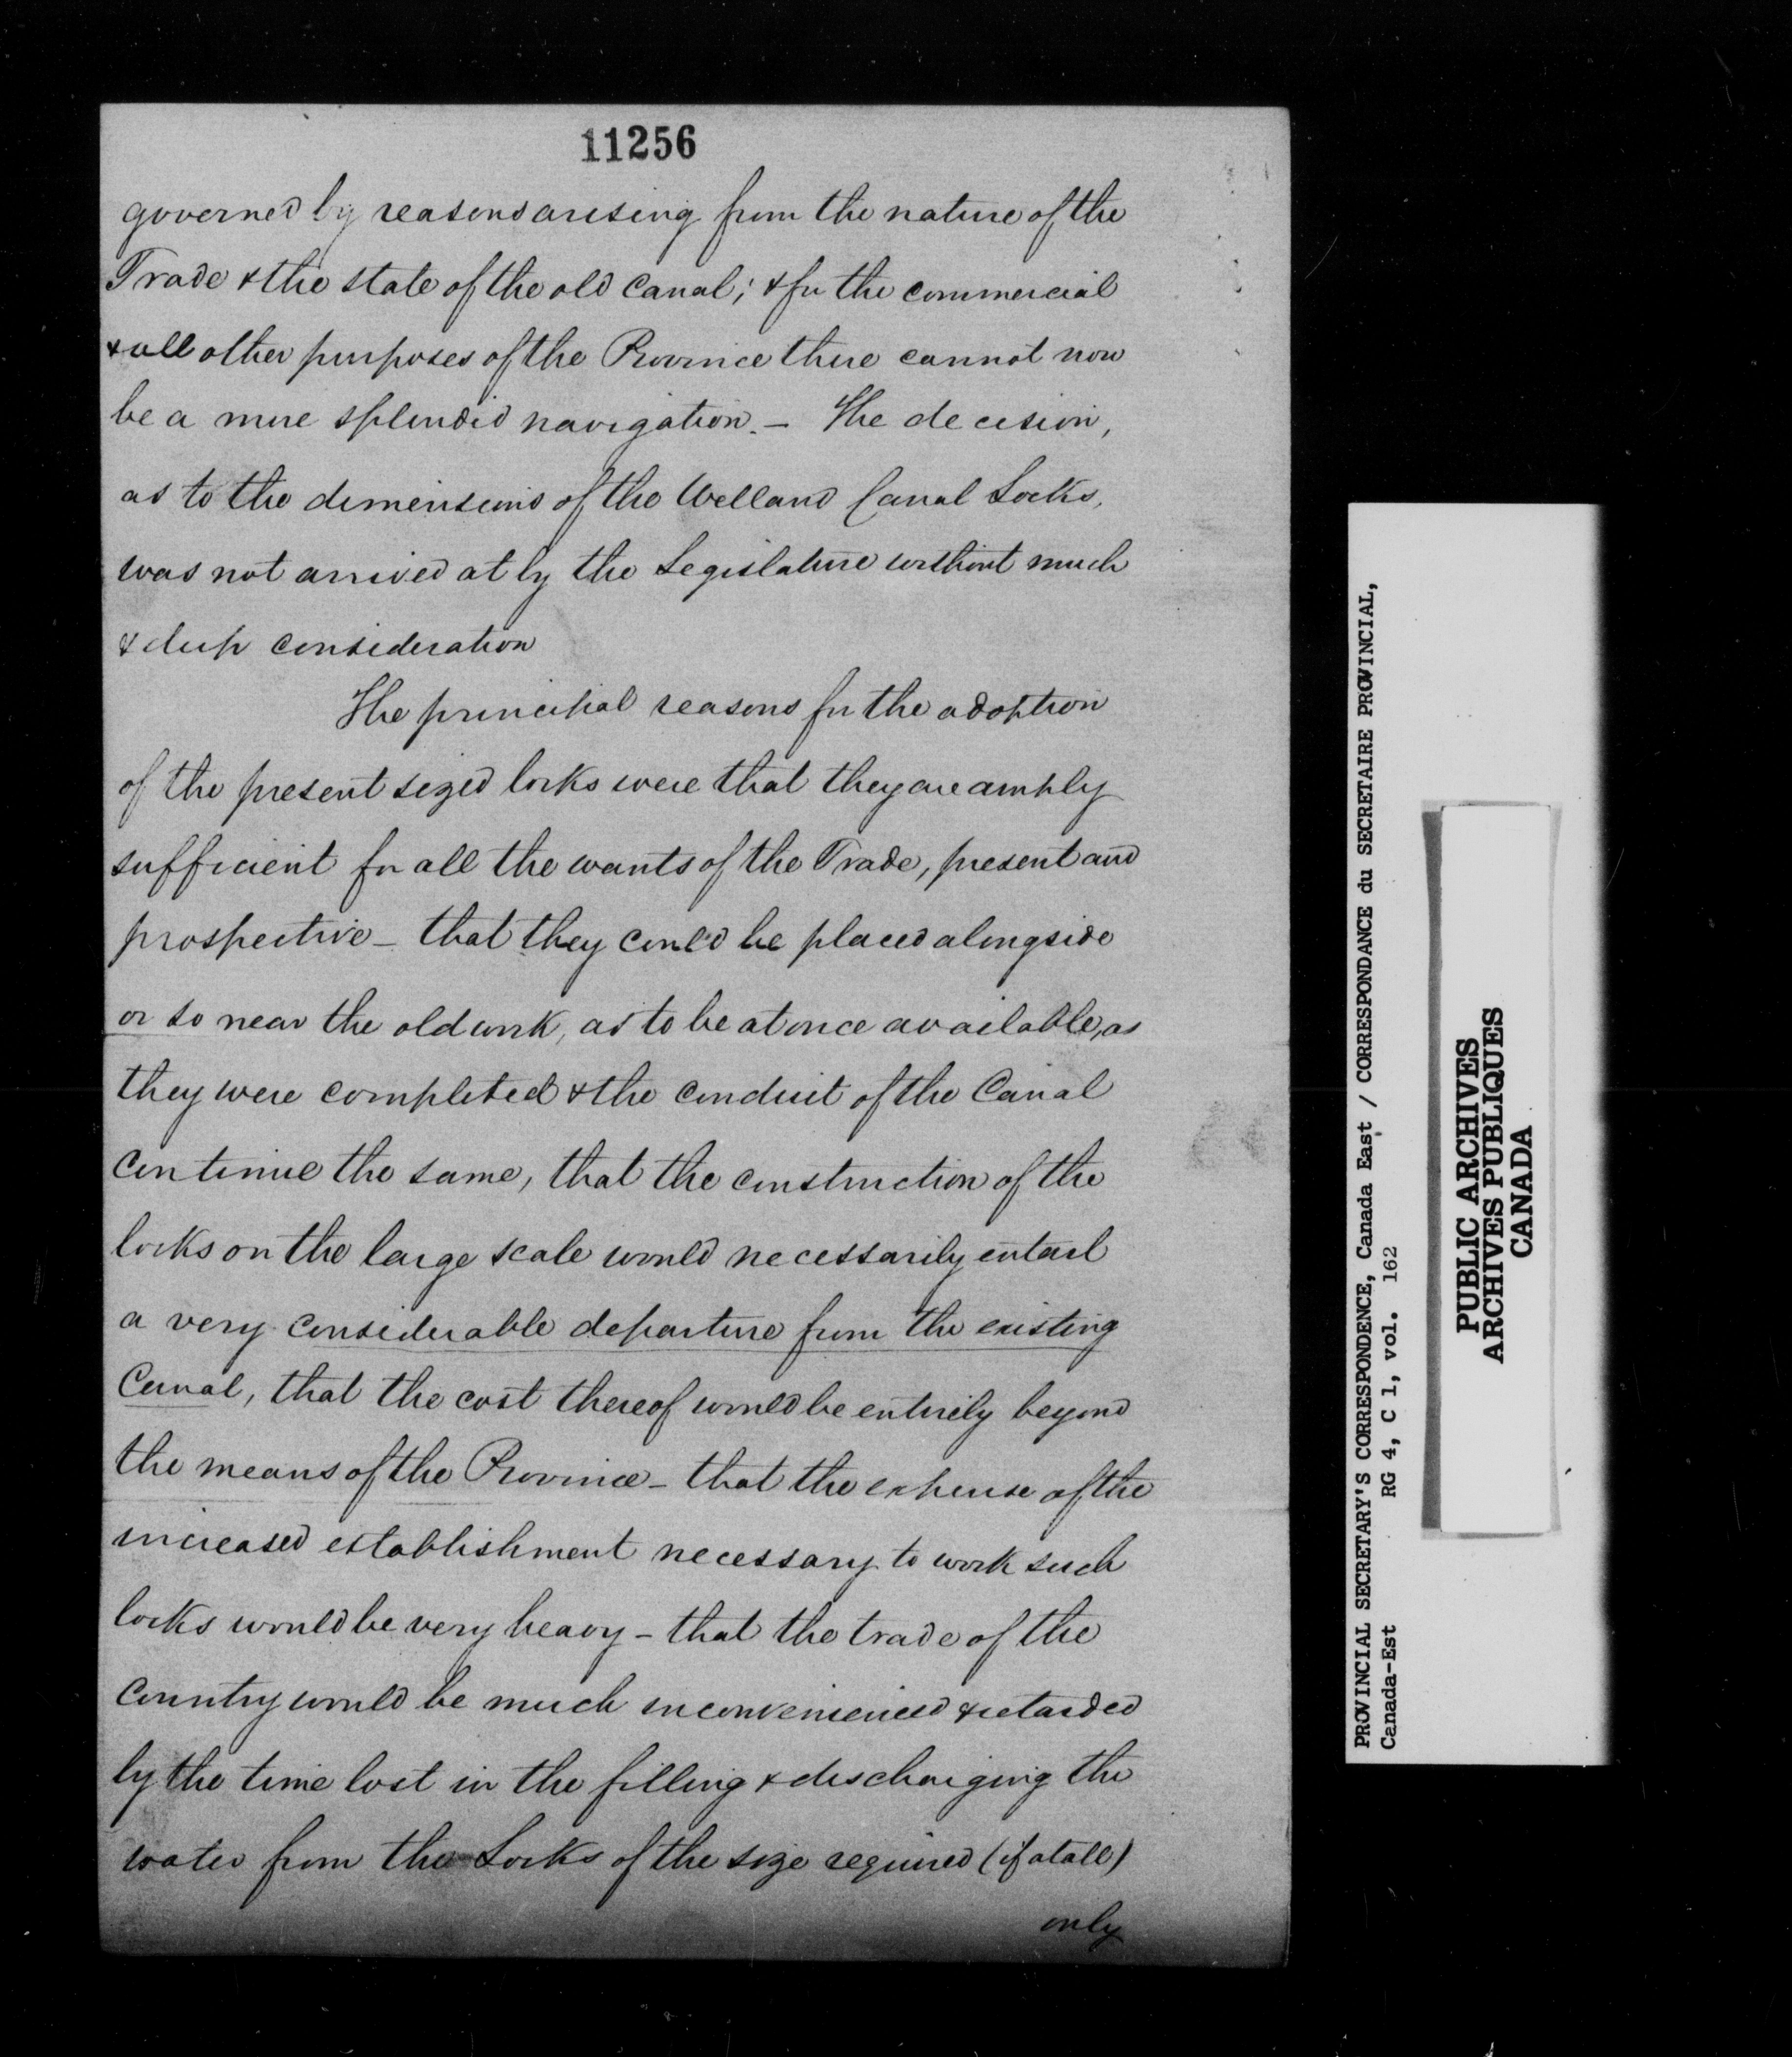 11256
governed by reasons arising from the nature of the
Trade & the state of the old Canal; & for the commercial
& all other purposes of the Province there cannot now
be a more splendid navigation. — The decision,
as to the dimensions of the Welland Canal Locks,
was not arrived at by the Legislature without much
& deep consideration
The principal reasons for the adoption
of the present sized locks were that they are amply
sufficient for all the wants of the Trade, present and
prospective — that they could be placed alongside
or so near the old work, as to be at once available, as
they were completed & the conduit of the Canal
continue the same, that the construction of the
locks on the large scale would necessarily entail
a very considerable departure from the existing
Canal, that the cost thereof would be entirely beyond
the means of the Province — that the expense of the
increased establishment necessary to work such
locks would be very heavy — that the trade of the
Country would be much inconvenienced & retarded
by the time lost in the filling & discharging the
water from the Locks of the size required (if at all)
only
PROVINCIAL SECRETARY'S CORRESPONDENCE, Canada East / CORRESPONDANCE du SECRETAIRE PROVINCIAL,
Canada-Est RG 4, C 1, vol. 162
PUBLIC ARCHIVES
ARCHIVES PUBLIQUES
CANADA